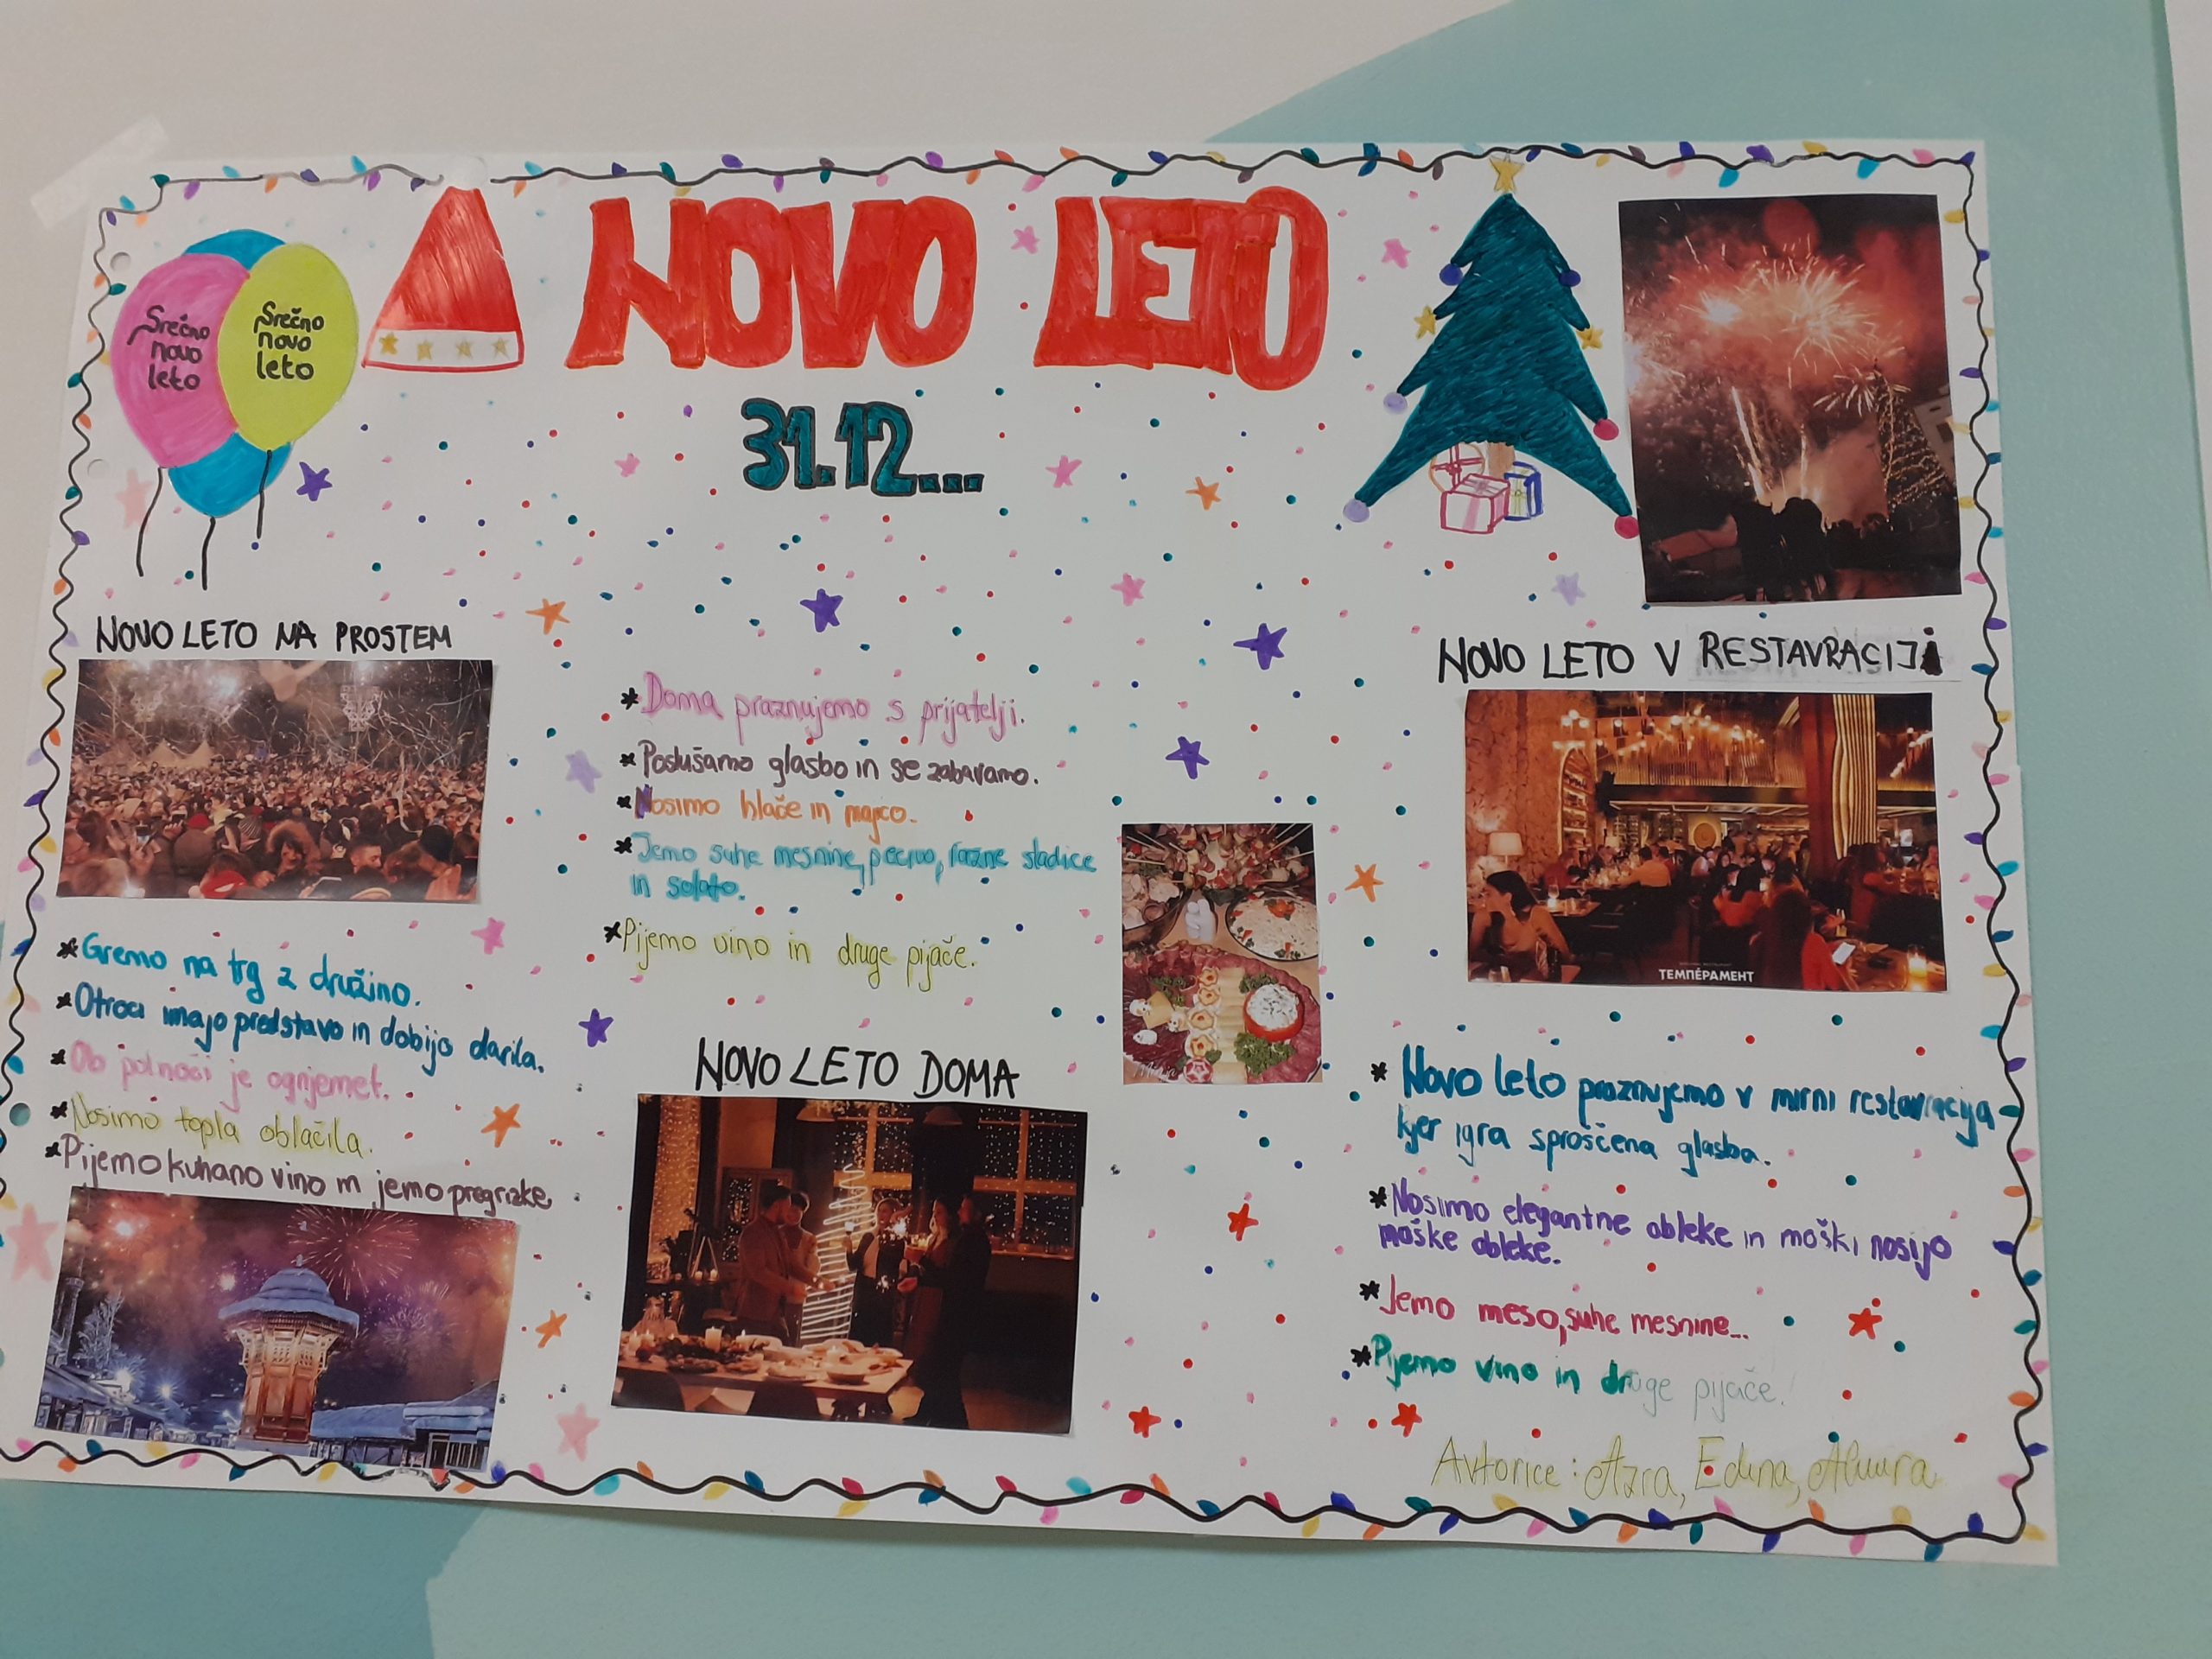 Srečno
novo
leto
Srečno
novo
leto
NOVO LETO
31.12...
NOVO LETO NA PROSTEM
* Gremo na trg z družino.
* Otroci imajo predstavo in dobijo darila.
* Ob polnoči je ognjemet.
* Nosimo topla oblačila.
* Pijemo kuhano vino in jemo pregrizke
* Doma praznujemo s prijatelji.
* Poslušamo glasbo in se zabavamo.
* Nosimo hlače in majco.
* Jemo suhe mesnine, pecivo, razne sladice
in solato.
* Pijemo vino in druge pijače.
NOVO LETO DOMA
NOVO LETO V RESTAVRACIJI
ТЕМПЕРАМЕНТ
* Novo leto praznujemo v mirni restavracija
kjer igra sproščena glasba.
* Nosimo elegantne obleke in moški nosijo
moške obleke.
* Jemo meso, suhe mesnine...
* Pijemo vino in druge pijače!
Avtorice: Azra, Edina,